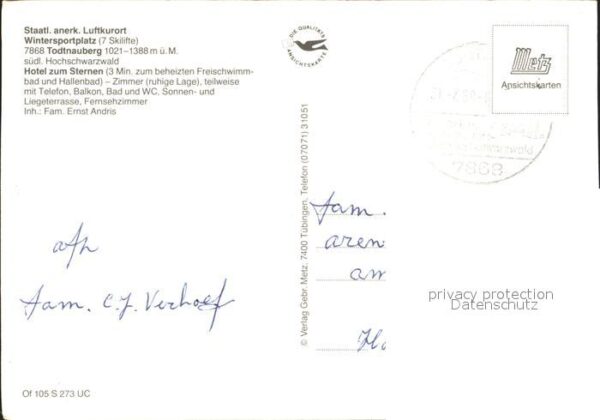 Staatl. anerk. Luftkurort
Wintersportplatz (7 Skilifte)
7868 Todtnauberg 1021–1388 m ü. M.
südl. Hochschwarzwald
Hotel zum Sternen (3 Min. zum beheizten Freischwimm-
bad und Hallenbad) – Zimmer (ruhige Lage), teilweise
mit Telefon, Balkon, Bad und WC, Sonnen- und
Liegeterrasse, Fernsehzimmer
Inh.: Fam. Ernst Andris
DIE QUALITÄTS
ANSICHTSKARTE
Metz
Ansichtskarten
7868
© Verlag Gebr. Metz, 7400 Tübingen, Telefon (07071) 31051
afh
fam. C.J. Verhoef
fam.
aren
am
Ho
privacy protection
Datenschutz
Of 105 S 273 UC